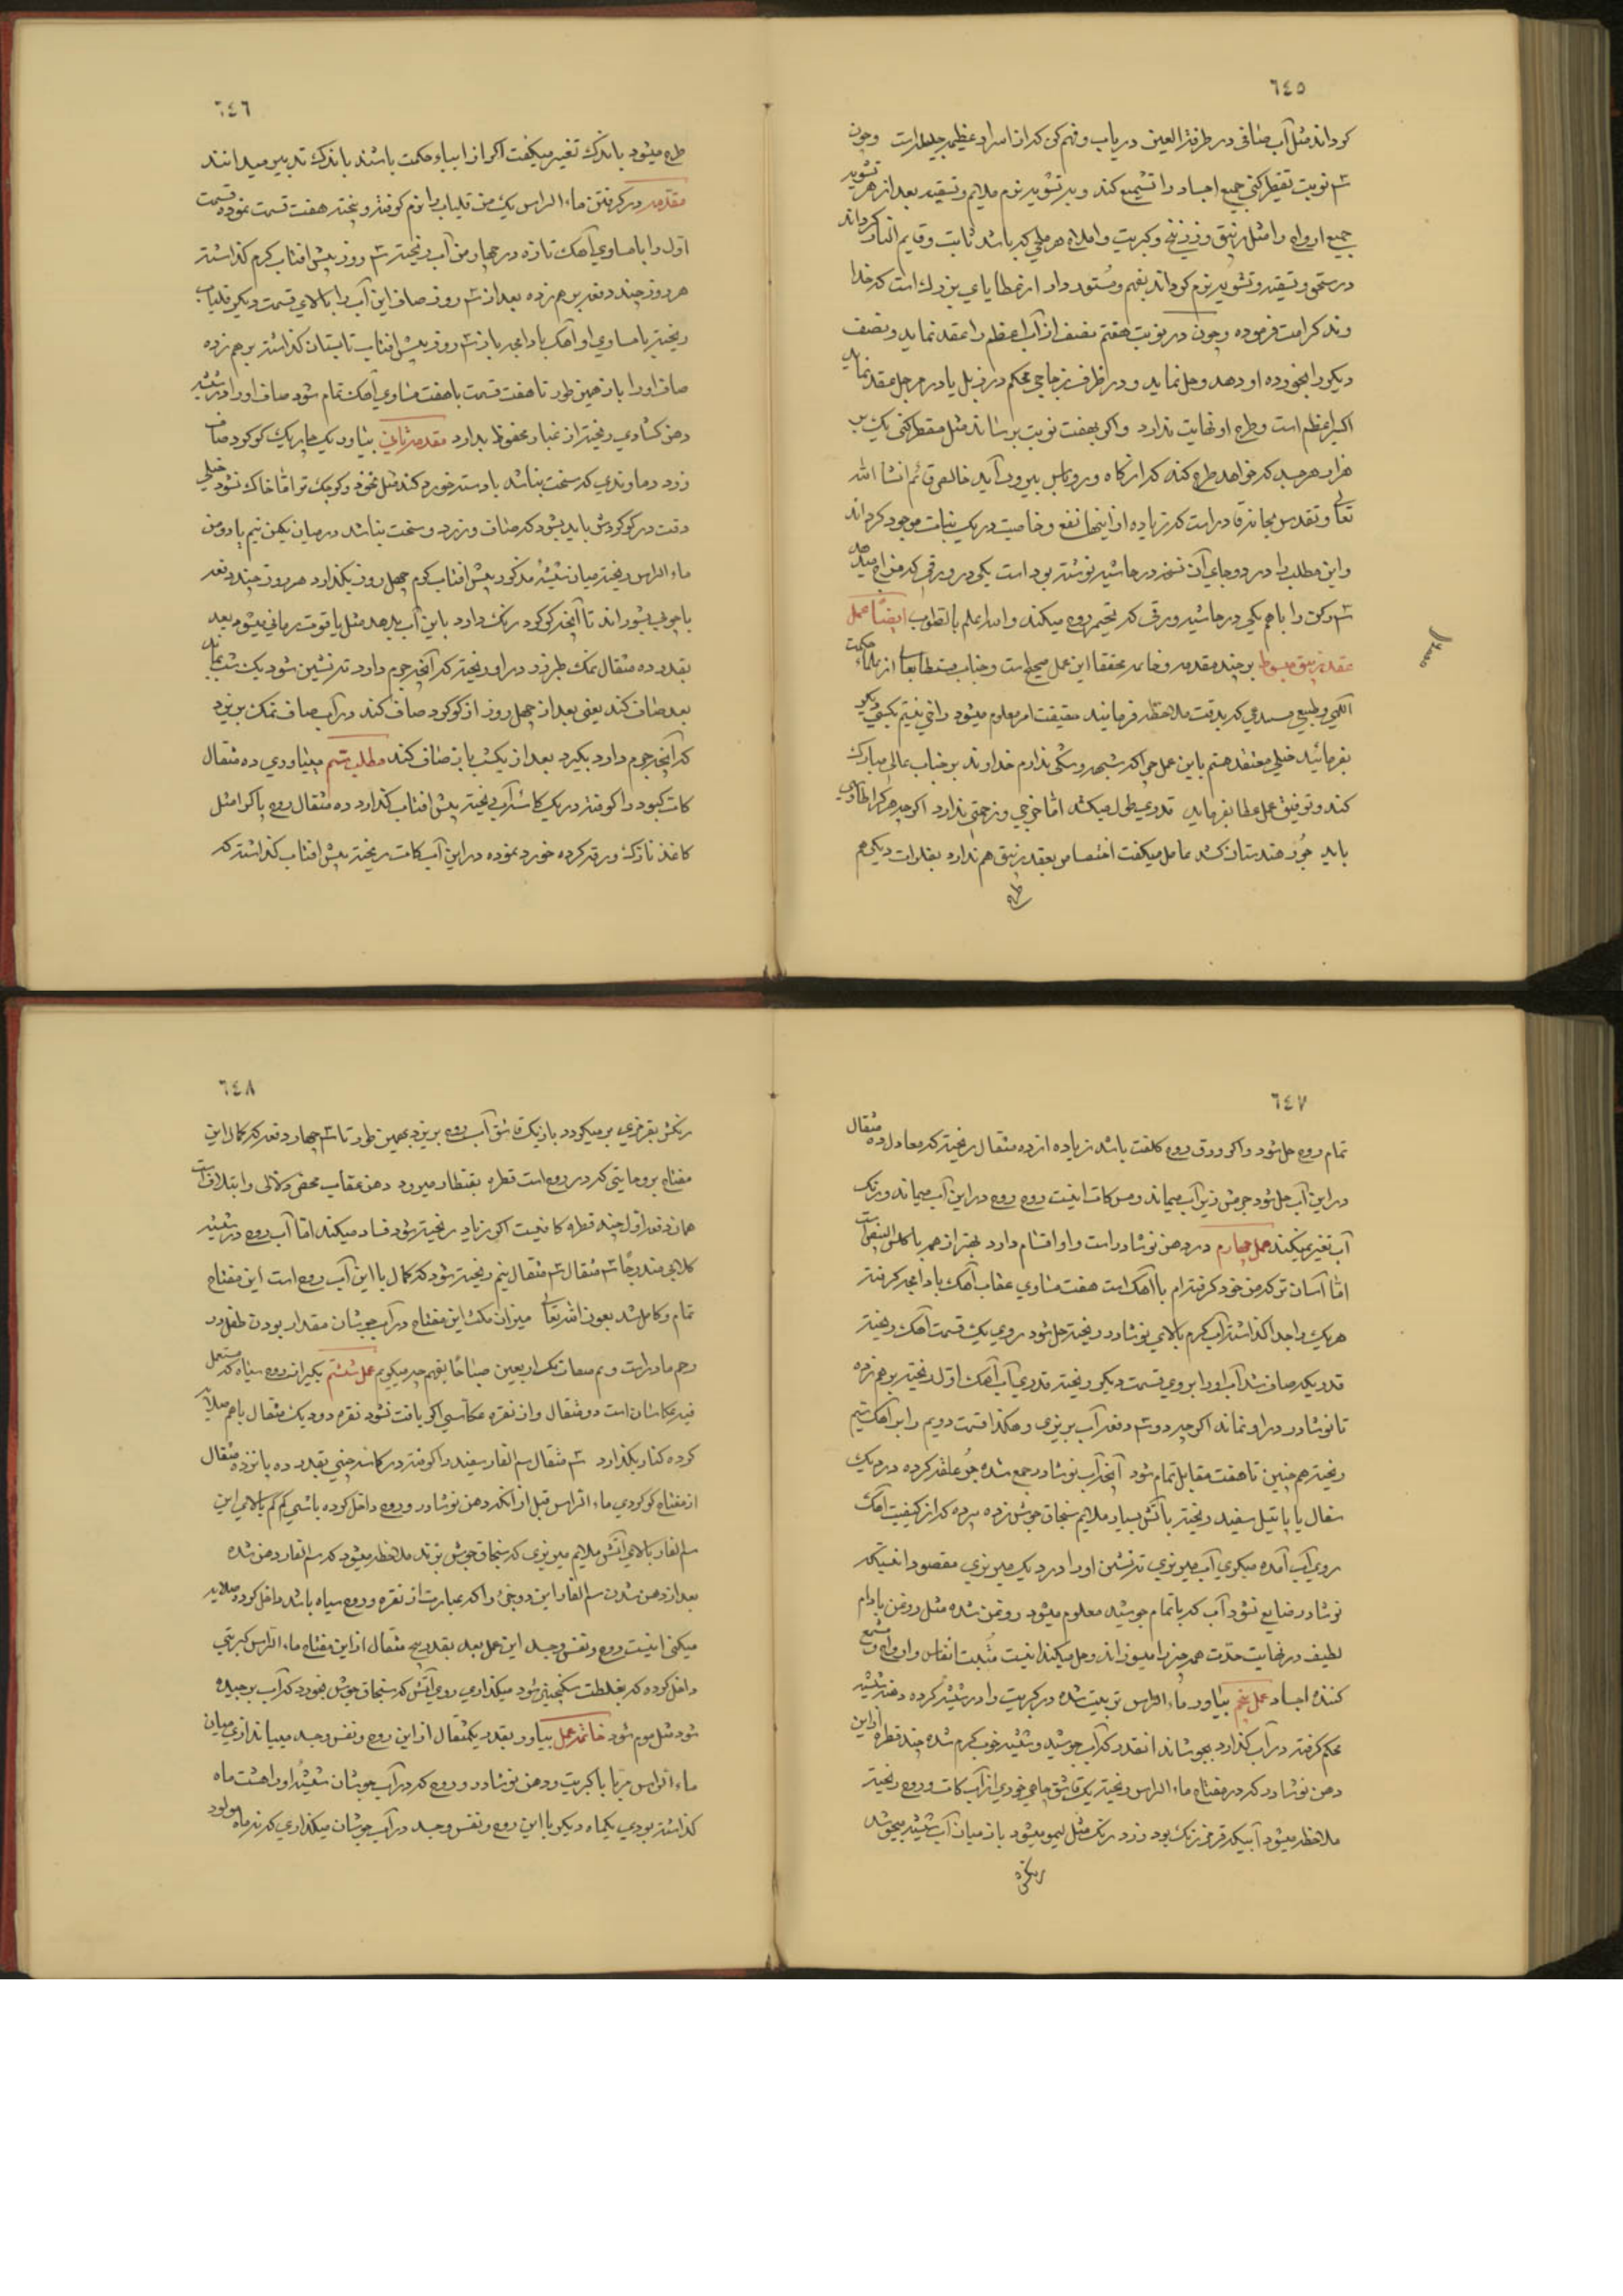 ٦٤٥
کرداند مثل آب صافی در طرفة العین دریاب و فهم کن که از اسرار عظیمه جلیله است وچون
سه نوبت تقطیر کنی جمیع اجساد را تشمیع کند و بتشویه نرم ملایم و تسقیه بعد از هر تشویه
جمیع ارواح را مثل زیبق و زرنیخ و کبریت و املاح هر ملحی که باشد ثابت و قایم النار کرداند
در سحق و تسقیه و تشویه نرم کرداند بفهم و مستور دار از عطایای بزرك است که خدا
وند کرامت فرموده وچون در نوبت هفتم نصف از آب اعظم را عقد نماید و نصف
دیکر را بخورده او دهد و حل نماید و در ظرف زجاجی محکم در زبل یا در مرجل عقد نماید
اکسیر اعظم است و طرح او نهایت ندارد و اکر بهفت نوبت برساند مثل مقطر کنی یك بر
هزار هر جسد که خواهد طرح کند که از کاه و روباس بیرون آید خالص قائم انشا الله
تعالی و تقدس سبحانه قادر است که زیاده از اینها نفع و خاصیت در یك نبات موجود کرداند
و این مطلب را در دو جای آن نسخه در حاشیه نوشته بود است یکی در ورقی که مزاج میدهد
سه رکن را باهم یکی در حاشیه ورقی که تخمیر روح میکند والله اعلم بالصواب ایضًا عمل
عقد زیبق مبسوط بر چند مقدمه و خاتمه محققا این عمل صحیح است و جناب مستطابعالی از علماء حکمت
الهی و طبیعی هستید می که بدقت ملاحظه فرمایند حقیقت امر معلوم میشود راضی نیستم بکسی دیکر
بفرمائید خیلی معتقد هستم باین عمل چرا که شبهه و شکی ندارم خداوند بر جناب عالی مبارك
کند و توفیق عمل عطا بفرماید قدری طول میکشد امّا خرجی و زحمتی ندارد اکرچه هرکرا طاوس
باید جور هندستان کشد عامل میکفت اختصاص بعقد زیبق هم ندارد بفلزات دیکر هم
طرح
٦٤٦
طرح میشود باندك تغیر میکفت اکر از ارباب حکمت باشند باندك تدبیر میدانند
مقدمه در کرفتن ماء الراس یك من قلیاب را نرم کوفته و بیخته هفت قسمت نموده قسمت
اول را با مساوی آهك تازه در چهار من آب ریخته سه روز پیش افتاب کرم کذاشته
هر روز چند دفعه بر هم زده بعد از سه روز صاف این آب را بالای قسمت دیکر قلیاب
ریخته با مساوی او آهك باز سه روز پیش افتاب تابستان کذاشته بر هم زده
صاف او را باز همین طور تا هفت قسمت با هفت مساوی آهك تمام شود صاف او را در شیشه
دهن کشادی ریخته از غبار محفوظ بدارد مقدمه ثانی بیاورد یك چاریك کوکرد صاف
زرد دماوندی که سخت نباشد با دسته خورد کند مثل نخود و کوچك تر امّا خاك نشود خیلی
دقت در کوکردش باید بشود که صاف و زرد و سخت نباشد در میان یکمن نیم یا دو من
ماء الراس ریخته میان شیشهٔ مذکور پیش افتاب کرم چهل روز بکذارد هر روز چند دفعه
با چوبی بشوراند تا آنچه کوکرد رنك دارد باین آب بدهد مثل یاقوت رمانی میشود بعد
بقدر ده مثقال نمك طبرزد در او ریخته که آنچه جرم دارد ته نشین شود یك شب بماند
بعد صاف کند یعنی بعد از چهل روز از کوکرد صاف کند در آب صاف نمك بریزد
که آنچه جرم دارد بکیرد بعد از یکشب باز صاف کند مطلب سیم میاوری ده مثقال
کات کبود را کوفته در یك کاسه آب ریخته پیش افتاب کذارد ده مثقال روح یا کرا مثل
کاغذ نازك ورقه کرده خورد نموده در این آب کات ریخته پیش افتاب کذاشته که
٦٤٧
تمام روح حل شود و اکر ورق روح کلفت باشد زیاده از ده مثقال ریخته که معادل ده مثقال
در این آب حل شود جرمش زیر آب میماند و مس کات اینست روح روح در این آب میماند و رنك
آب تغیر میکند عمل چهارم در دهن نوشادر است و او اقسام دارد بهتر از همه با کلس البیض است
امّا آسان تر که من خود کرفته‌ام با آهك است هفت مساوی عقاب آهك کرفته
هر یك را جدا کذاشته آب کرم بالای نوشادر ریخته حل شود روی یك قسمت آهك ریخته
قدریکه صاف شد آب او را بر روی قسمت دیکر ریخته قدری آب آهك اول ریخته بر هم زده
تا نوشادر در او نماند اکرچه دو سه دفعه آب بریزی و هکذا قسمت دویم را بر آهك سیم
ریخته همچنین تا هفت مقابل تمام شود آنچه آب نوشادر جمع شده جو علاقه کرده در دیك
سفال یا پاتیل سفید ریخته باآتش بسیار ملایم سنجاق جوش زده پرده که از کیفیت آهك
روی آب آمده میکیری آب میریزی ته نشین او را در دیك میریزی مقصود اینستکه
نوشادر ضایع نشود آب که بالتمام جوشید معلوم میشود روغن شده مثل روغن بادام
لطیف در نهایت حدّت همه چیز را میسوزاند و حل میکند اینست مثبت انفاس و ارواح و مشمع
کننده اجساد عمل پنجم بیاورد ماء الراس تربیت شده در کبریت را در شیشه کرده دهن شیشه
محکم کرفته در آب کذارد بجوشاند انقدر که آب جوشید و شیشه خوب کرم شده چند قطره از این
دهن نوشادر که در مفتاح ماء الراس ریخته یك قاشق چای خوری از آب کات و روح ریخته
ملاحظه میشود آبیکه قرمز رنك بود زرد رنك مثل لیمو میشود باز میان آب شیشه میجوشد
رنکش
٦٤٨
رنکش بقرمزی بر میکردد باز یك قاشق آب روح بریزد بهمین طور تا سه چهار دفعه که کمال این
مفتاح بروحانیتی که در روح است قطره بقنطار میرود دهن عقاب محض دلالی و ایتلاف است
همان دفعه اول چند قطره کافیست اکر زیاد ریخته شود فساد میکند امّا آب روح در شیشه
کلابی متدرجًا سه مثقال سه مثقال نیم ریخته شود که کمال با این آب روح است این مفتاح
تمام و کامل شد بعون الله تعالی میزان مکث این مفتاح در آب جوشان مقدار بودن طفل در
رحم مادر است عمل ششم بکیر از روح سیاه که مستعمل
دو مثقال و از نقره عکاسی اکر یافت نشود نقره دو دیك مثقال با هم ملایم
کرده کنار بکذارد سه مثقال سم الفار سفید را کوفته در کاسه چینی بقدر ده پانزده مثقال
از مفتاح کوکردی ماء الراس قبل از آنکه دهن نوشادر و روح داخل کرده باشی کم کم بالای این
سم الفار بالای آتش ملایم میریزی که سنجاق جوش بزند ملاحظه میشود که سم الفار دهن شده
بعد از دهن شدن سم الفار این دو جزء را که عبارت از نقره و روح سیاه باشد داخل کرده صلایه
میکنی اینست روح و نفس و جسد این عمل بعد بقدر پنج مثقال از این مفتاح ماء الراس کبریتی
داخل کرده که بغلظت سکنجبینی شود میکذاری روی آتش که سنجاق جوش بخورد که آب برچیده
شود مثل موم شود خاتمه عمل بیاور بقدر یکمثقال از این روح و نفس و جسد میاندازی میان
ماء الراس مربا با کبریت و دهن نوشادر و روح که در آب جوشان شیشهٔ او را هشت ماه
کذاشته بودی یکماه دیکر با این روح و نفس و جسد در آب جوشان میکذاری که نه ماه مولود